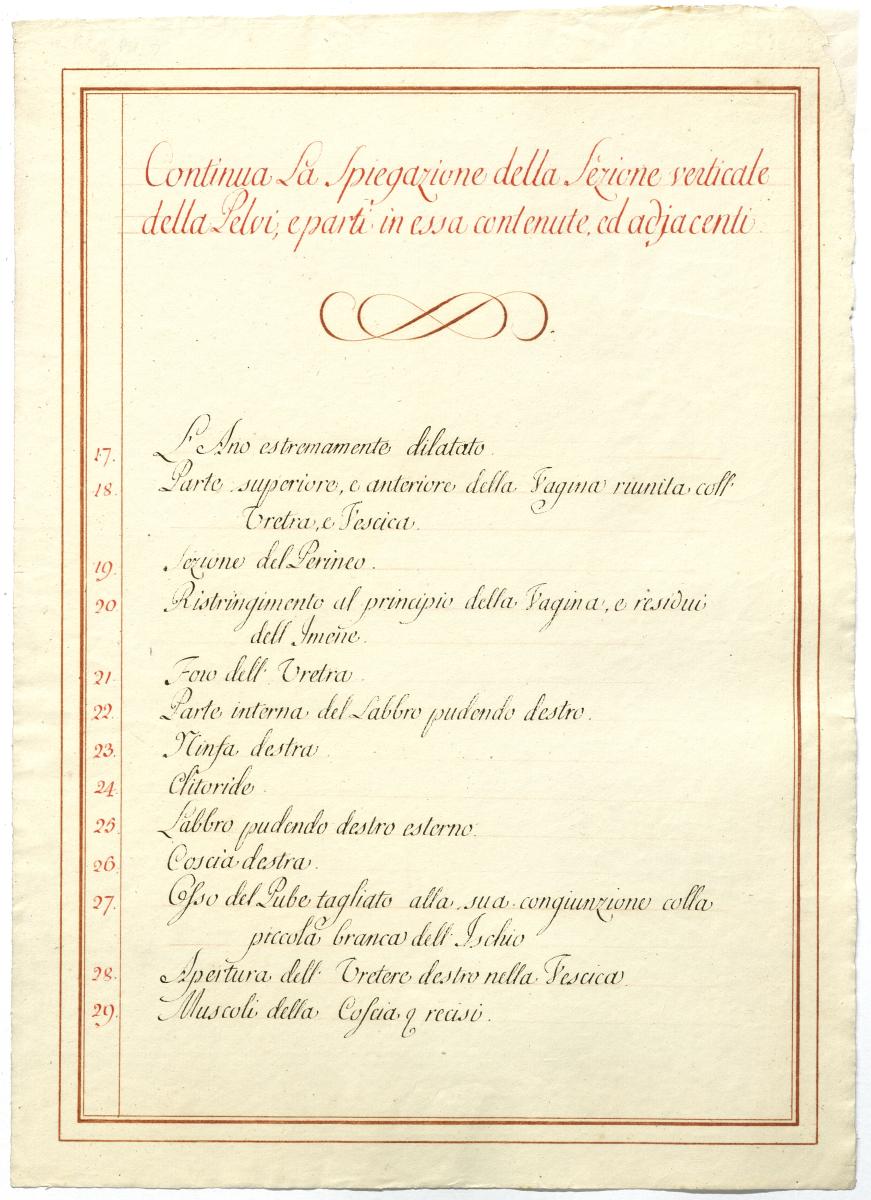 Continua La Spiegazione della Sezione verticale
della Pelvi, e parti in essa contenute, ed adjacenti.
17. L'Ano estremamente dilatato.
18. Parte superiore, e anteriore della Vagina riunita coll'
Vretra, e Vescica.
19. Sezione del Perineo.
20 Ristringimento al principio della Vagina, e residui
dell'Imene.
21. Foro dell'Vretra.
22. Parte interna del Labbro pudendo destro.
23. Ninfa destra.
24. Clitoride.
25. Labbro pudendo destro esterno.
26. Coscia destra.
27. Osso del Pube tagliato alla sua congiunzione colla
piccola branca dell'Ischio
28. Apertura dell'Vretere destro nella Vescica.
29. Muscoli della Coscia recisi.